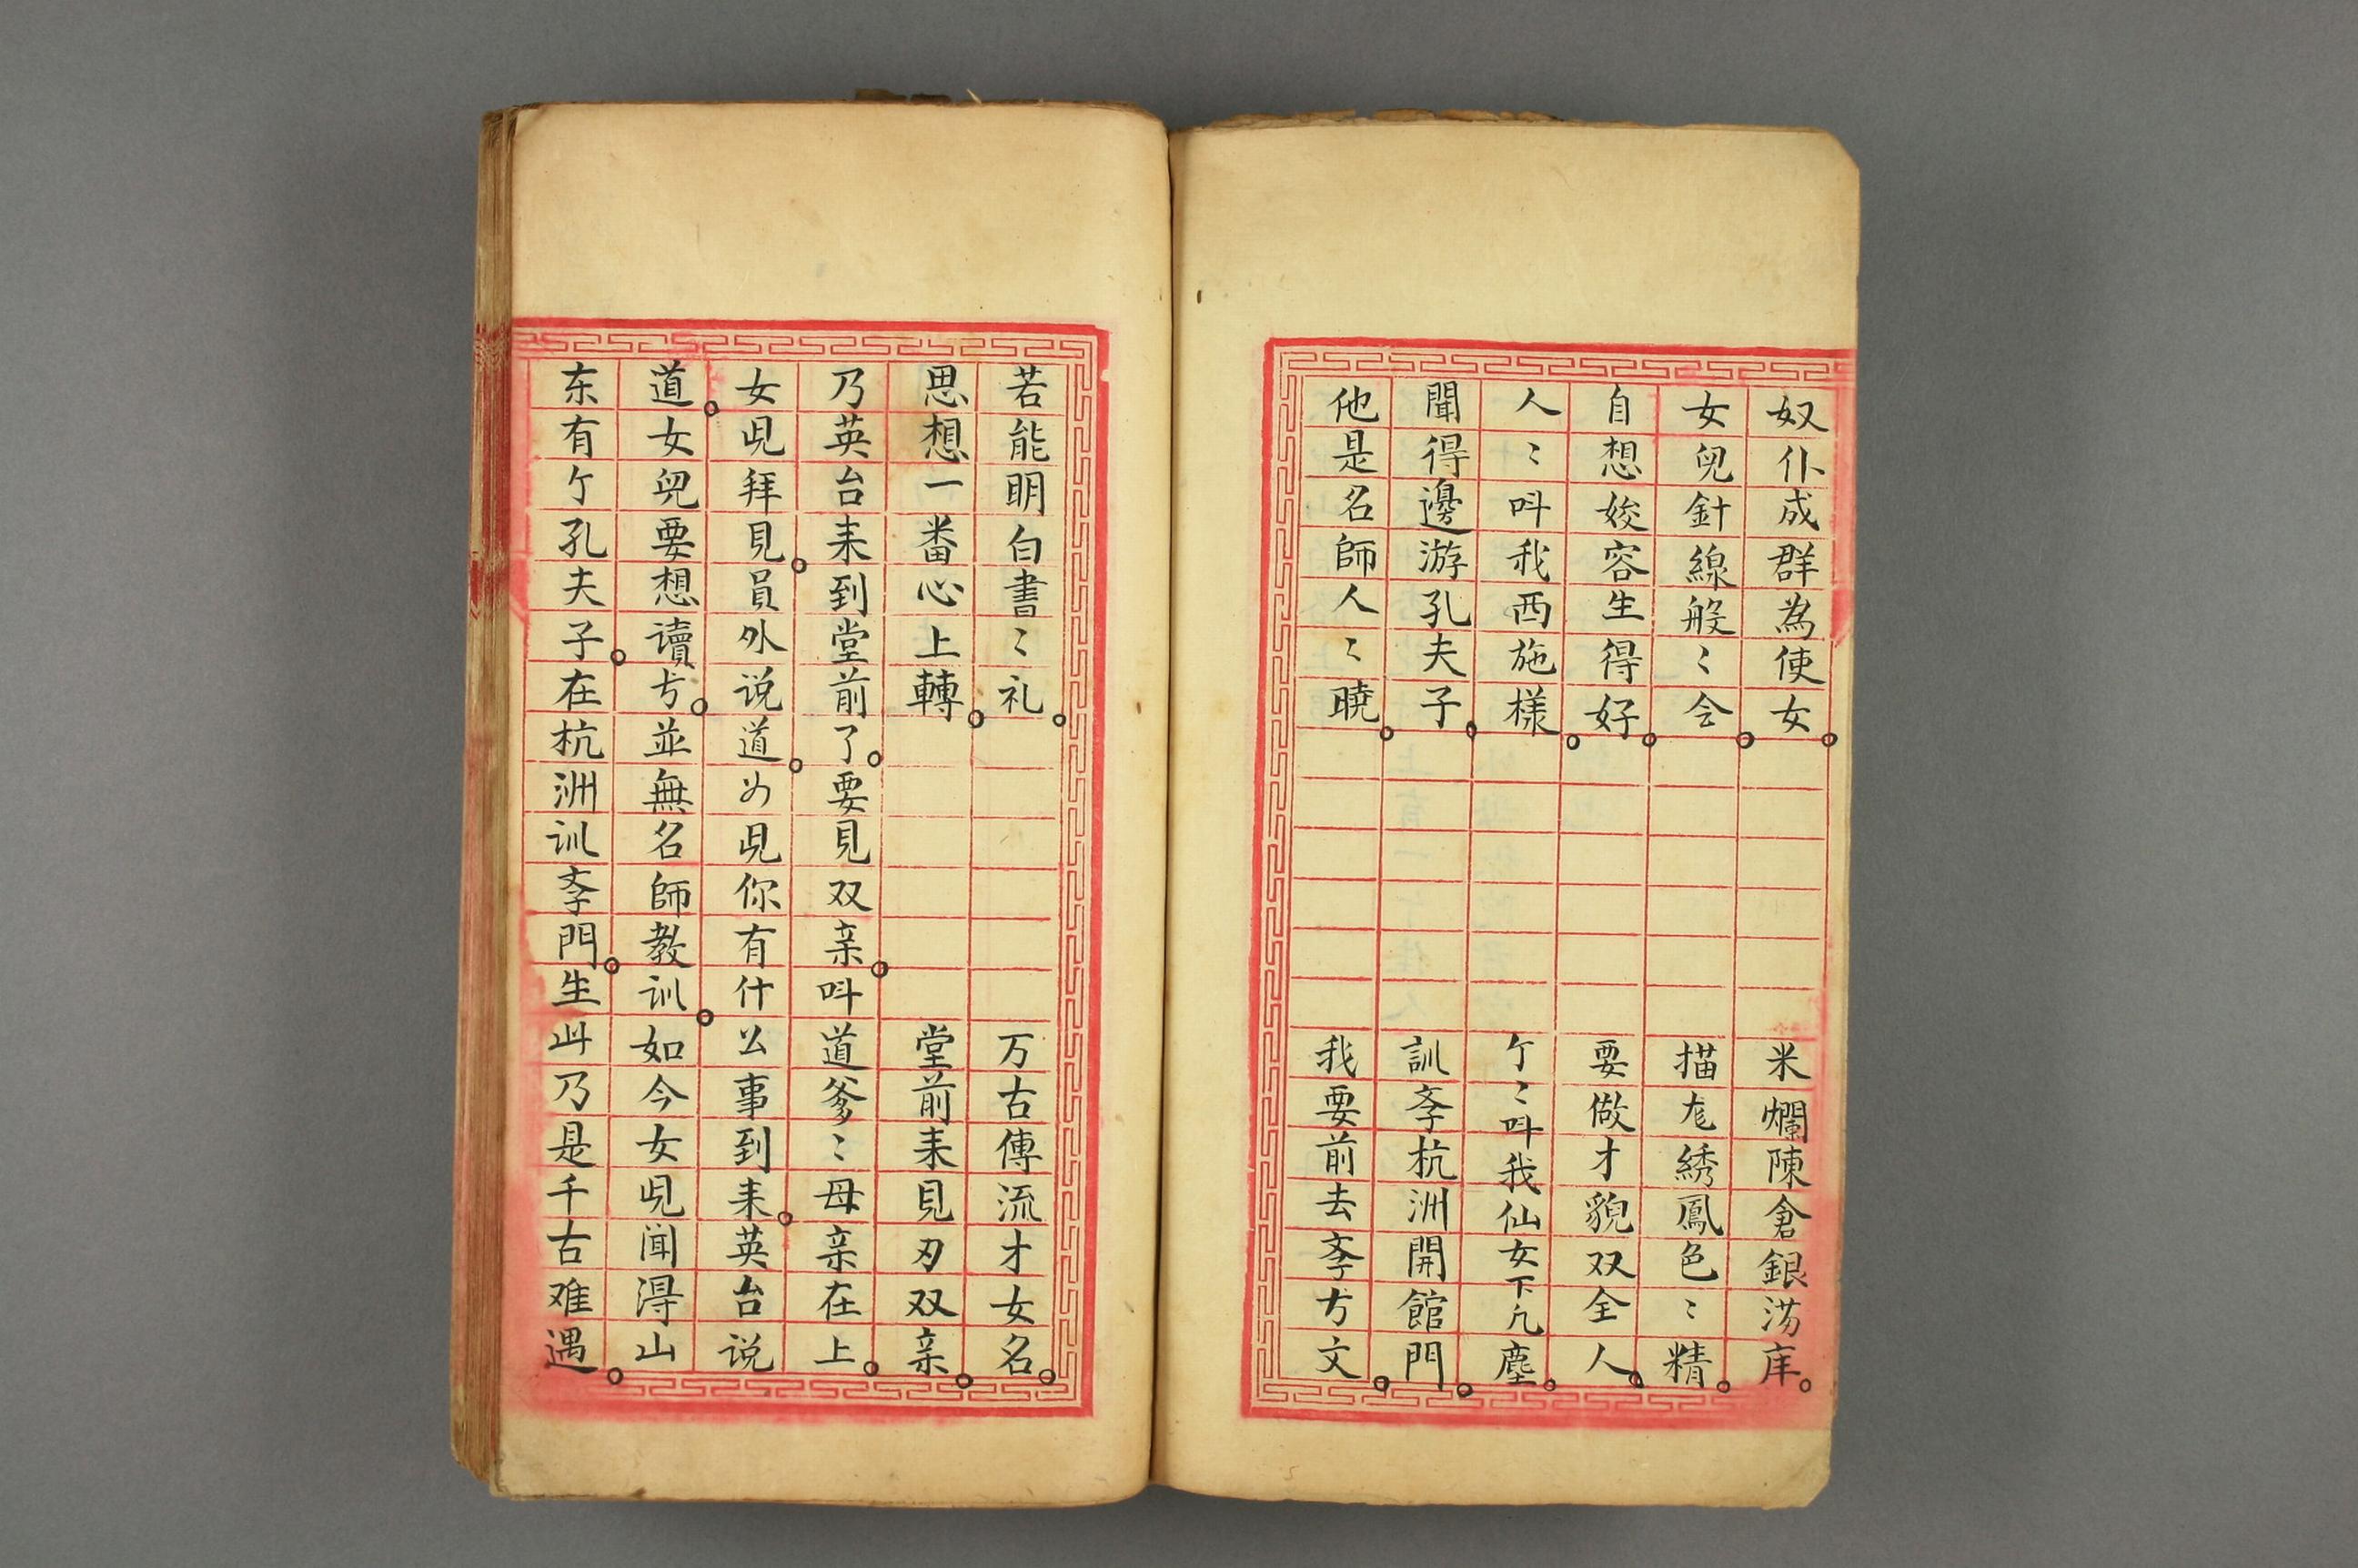 奴仆成群為使女。米爛陳倉銀蕩庫。
女児針線般〻会。描龙綉鳳色〻精。
自想姣容生得好。要做才貌双全人。
人〻呌我西施様。亇〻呌我仙女下凢塵。
聞得邊游孔夫子。訓斈杭洲開館門。
他是名師人〻曉。我要前去斈方文。
若能明白書〻礼。万古傳流才女名。
思想一番心上轉。堂前耒見刃双亲。
乃英台耒到堂前了。要見双亲。呌道爹〻母亲在上。
女児拜見。員外说道。为児你有什公事到耒。英台说
道。女児要想读书。並無名師教训。如今女児闻得山
东有亇孔夫子。在杭洲训斈門。生此乃是千古难遇。